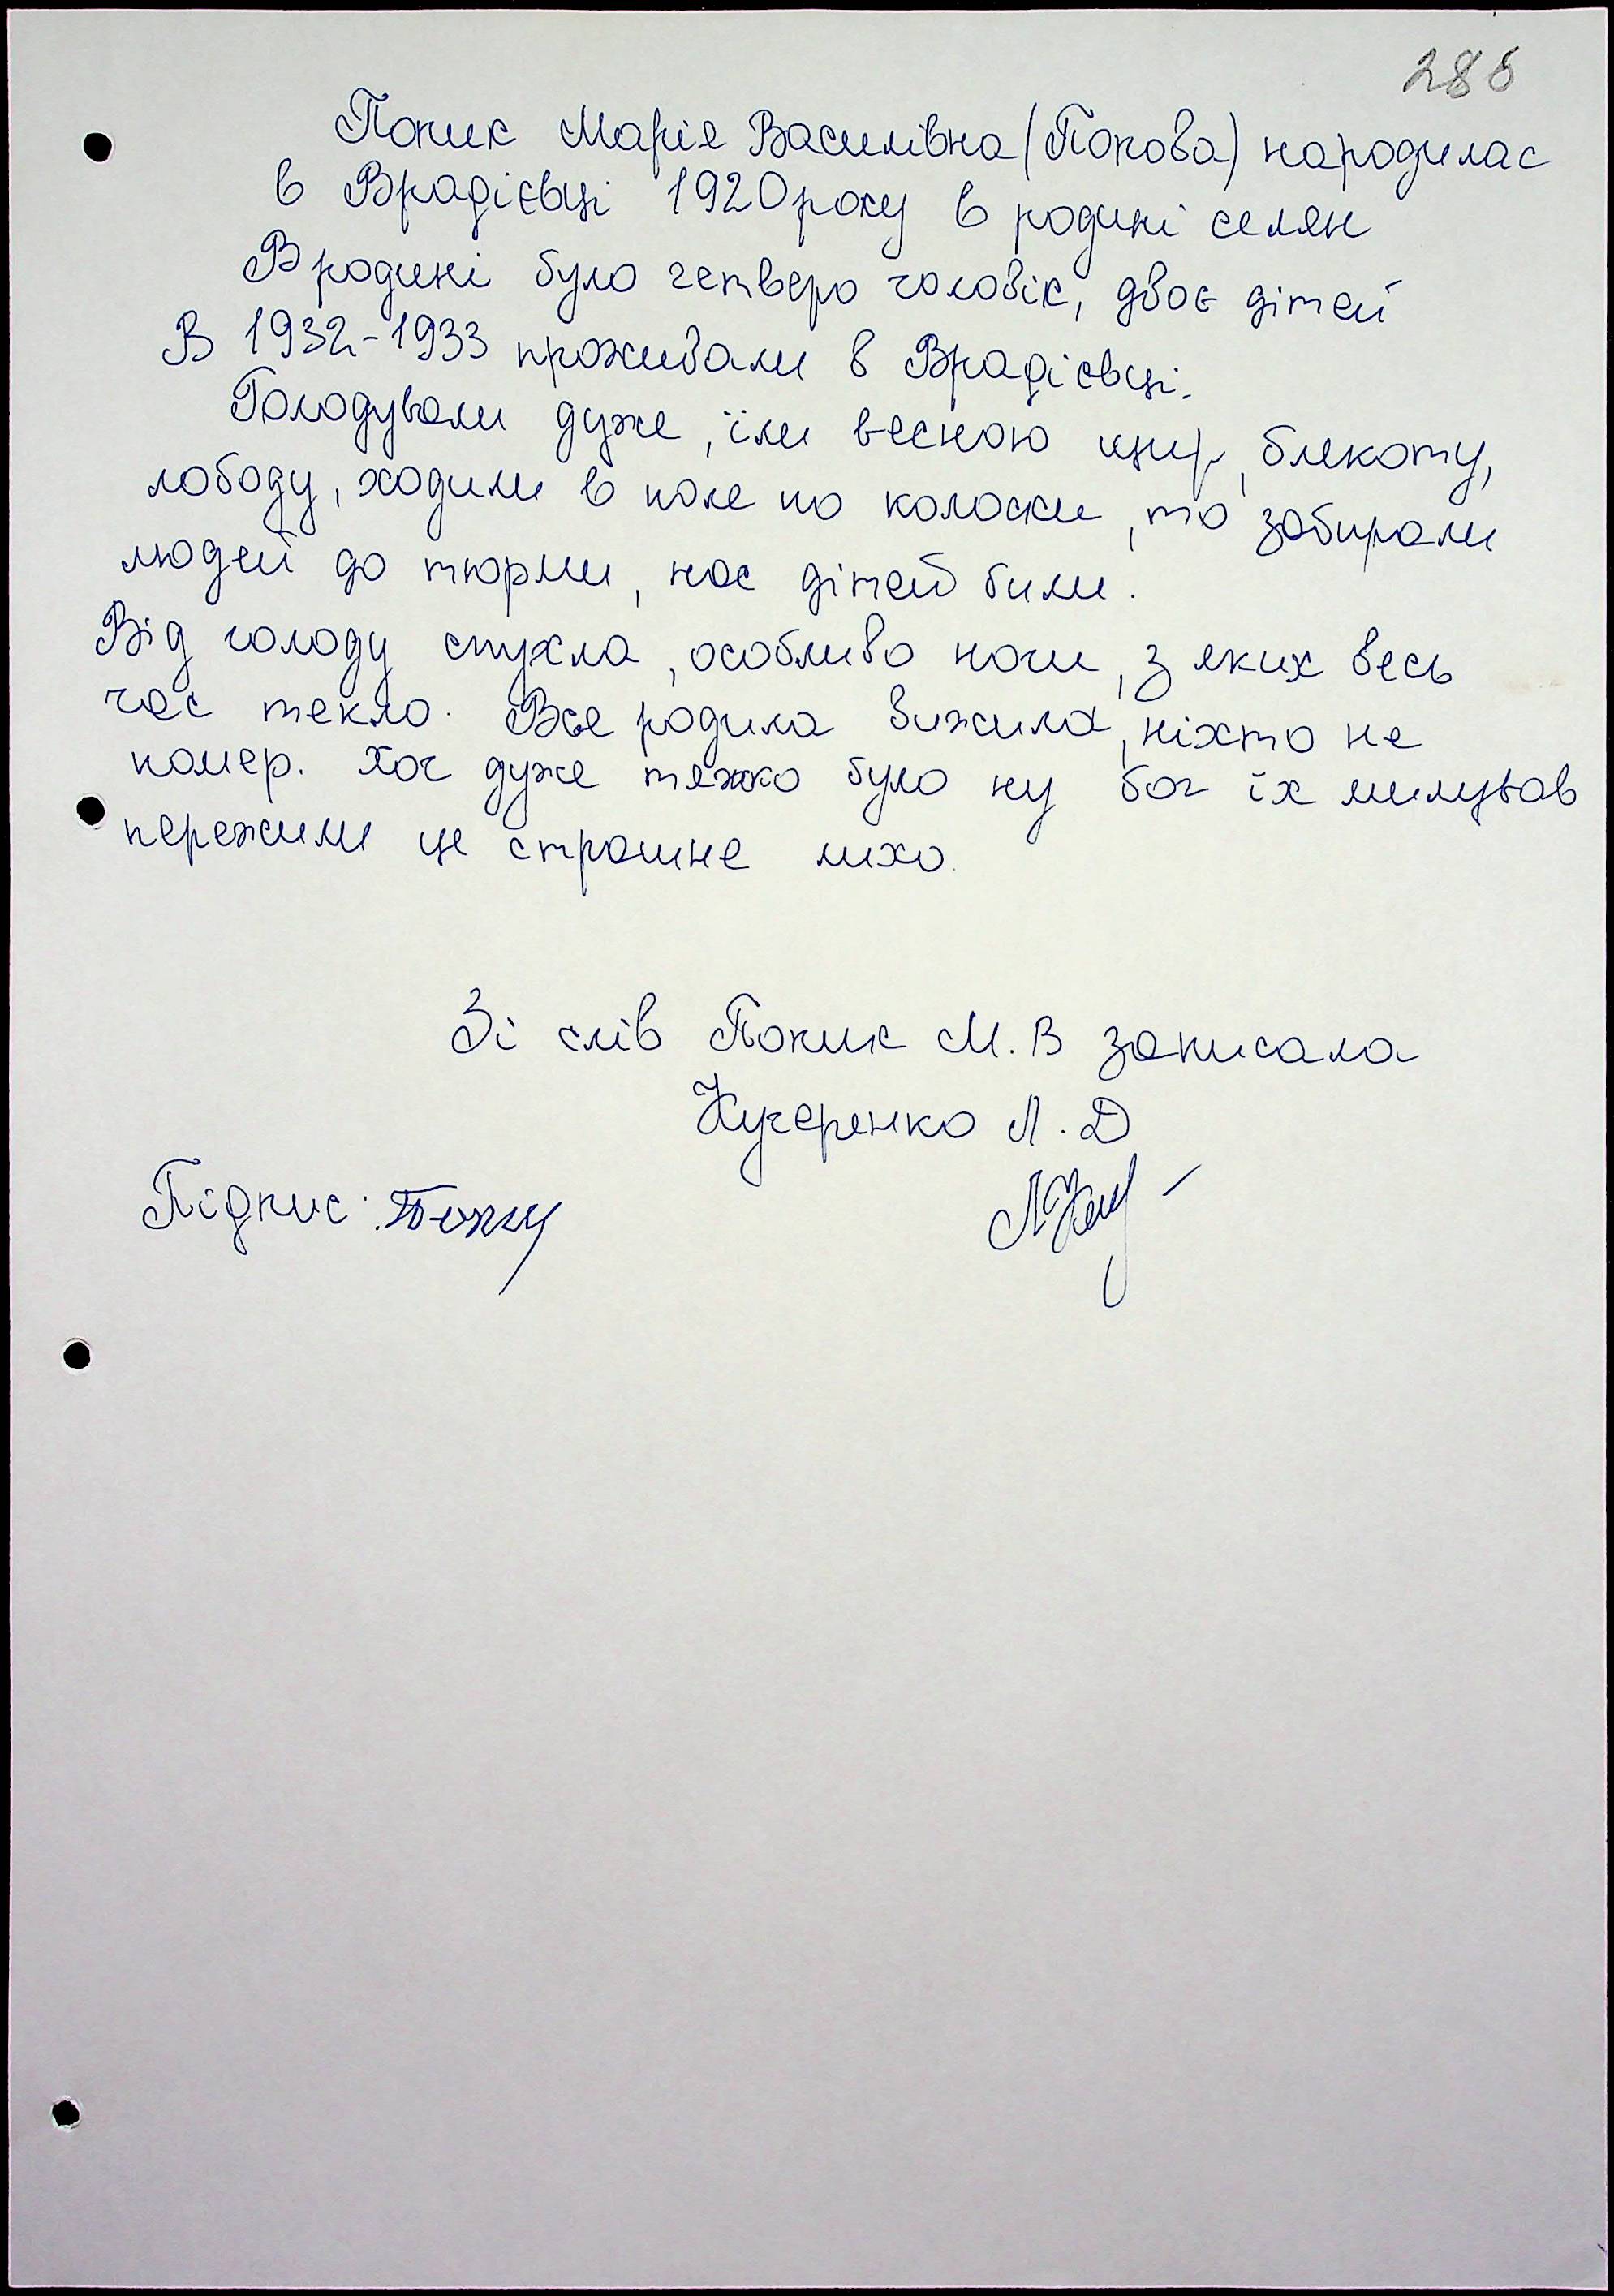 286
Попик Марія Василівна (Попова) народилас
в Врадієвці 1920 року в родині селян
В родині було четверо чоловік, двоє дітей
В 1932-1933 проживали в Врадієвці.
Голодували дуже, їли весною щир, блекоту,
лободу, ходили в поле по колоски, то забирали
людей до тюрми, нас дітей били.
Від голоду спухла, особливо ноги, з яких весь
час текло. Вся родина вижила, ніхто не
помер. Хоч дуже тяжко було ну бог їх милував
пережили це страшне лихо.
Зі слів Попик М. В записала
Кучеренко Л. Д
Підпис: